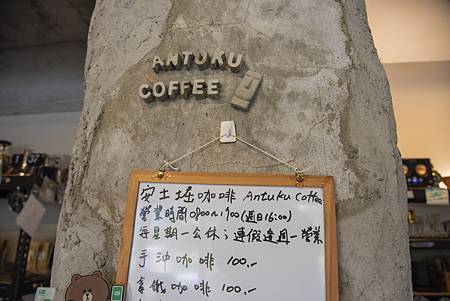 ANTUKU
COFFEE
安土堀咖啡 Antuku coffee
營業時間0800~1700(週日16:00)
每星期一公休;連假逢週一營業
手沖咖啡 100.-
拿鐵咖啡 100.-